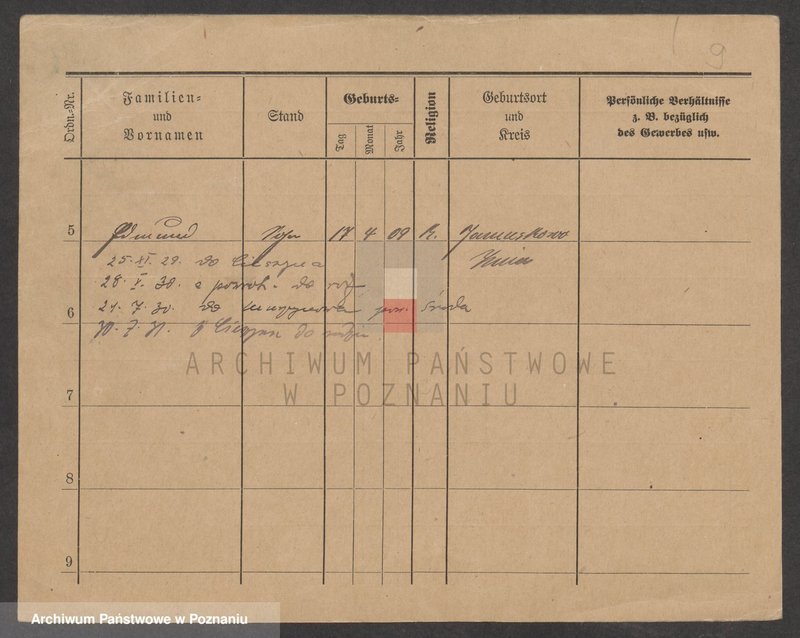 9
Ordn.-Nr.
Familien-
und
Vornamen
Stand
Geburts-
Tag
Monat
Jahr
Religion
Geburtsort
und
Kreis
Persönliche Verhältnisse
z. B. bezüglich
des Gewerbes usw.
5 Edmund Sohn 17 4 09 R.
25. XI. 29. do
28. V. 30. z powrot. do
24. 7. 30. do pow. Środa
6
30. 7. 31. do
ARCHIWUM PAŃSTWOWE
W POZNANIU
7
8
9
Archiwum Państwowe w Poznaniu